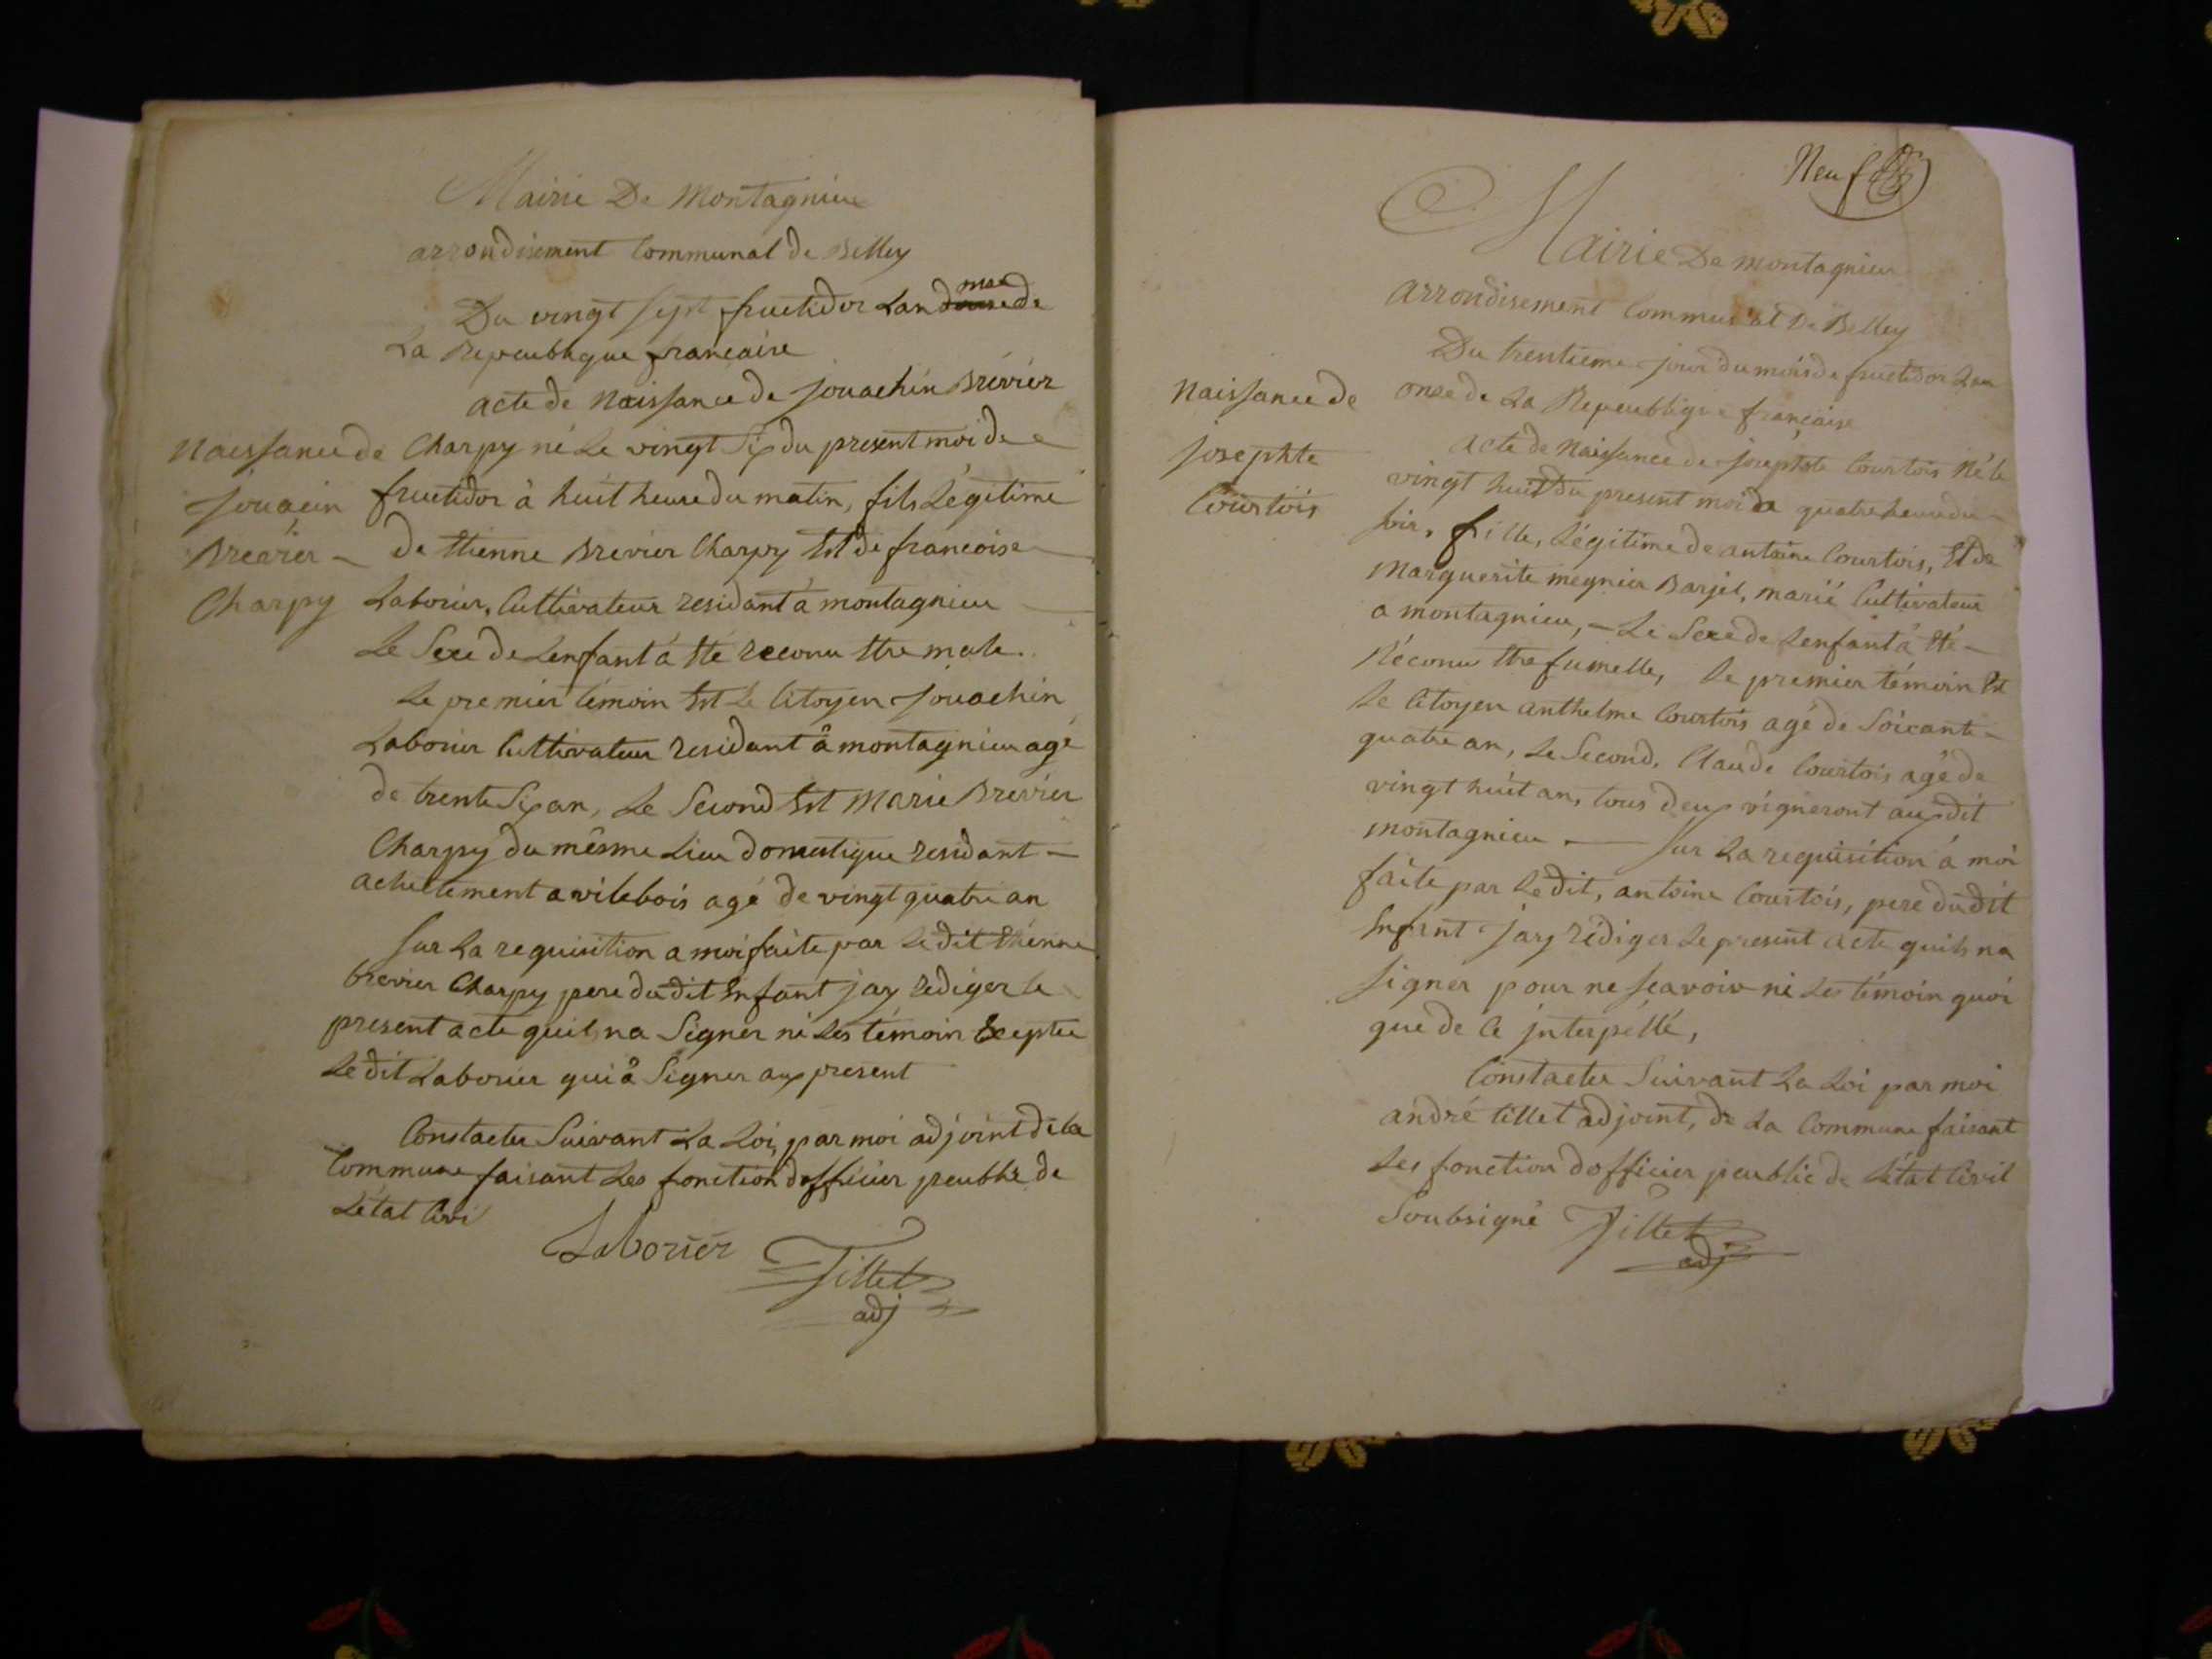 Mairie De Montagnieu
arrondisement Communal de Belley
Du vingt sept fructidor Lan onze de
La Repeublique francaise
acte de Naissance de Jouachin Brévier
Naissance de
Jouacin
Brevier -
Charpy
Charpy né Le vingt Six du present moi de
fructidor à huit heure du matin, fils Légitime
de Etienne Brevier Charpy Est de francoise
Laborier, Cultivateur residant à montagnieu
Le Sexe de Lenfant á Eté reconu Etre male.
Le premier témoin Est Le Citoyen Jouachin
Laborier Cultivateur residant à montagnieu agé
de trente Six an, Le Second Est Marie Brevier
Charpy du mêsme Lieu domestique residant -
achuellement a vilebois agé de vingt quatre an
Sur La requisition a moi faite par Le dit Etienne
brevier Charpy pere du dit Enfant jay rediger le
present acte quil na Signer ni Les témoin Exeptee
Le dit Laborier qui à Signer aux present
Constacter Suivant La Loi, par moi adjoint de La
Commune faisant Les fonction dofficier peublic de
Létat Civil
Laborier
Tillet
adj
Neuf
Mairie De montagnieu
arrondisement Communal De Belley
Du trentieme jour du mois de fructidor Lan
onze de La Repeublique francaise
Naissance de
Josephte
Courtois
acte de Naissance de Josephte Courtois Né le
vingt huit du present moi a quatre heure du
soir, fille, Légitime de antoine Courtois, Et de
Marguerite megnier Barjet, marié Cultivateur
a montagnieu, - Le Sexe de Lenfant á Eté -
Réconu Etre fumelle, Le premier témoin Est
Le Citoyen anthelme Courtois agé de Soixante -
quatre an, Le Second, Claude Courtois agé de
vingt huit an, tous deux vigneront aux dit
montagnieu. — Sur La requisition á moi
faite par Le dit, antoine Courtois, pere du dit
Enfant Jay rediger Le present acte quils na
Signer pour ne Scavoir ni Les témoin quoi
que de Ce jnterpéllé,
Constacter Suivant La Loi par moi
andré tillet adjoint, de La Commune faisant
Les fonction dofficier peublic de Létat Civil
Soubsigné Tillet
adj